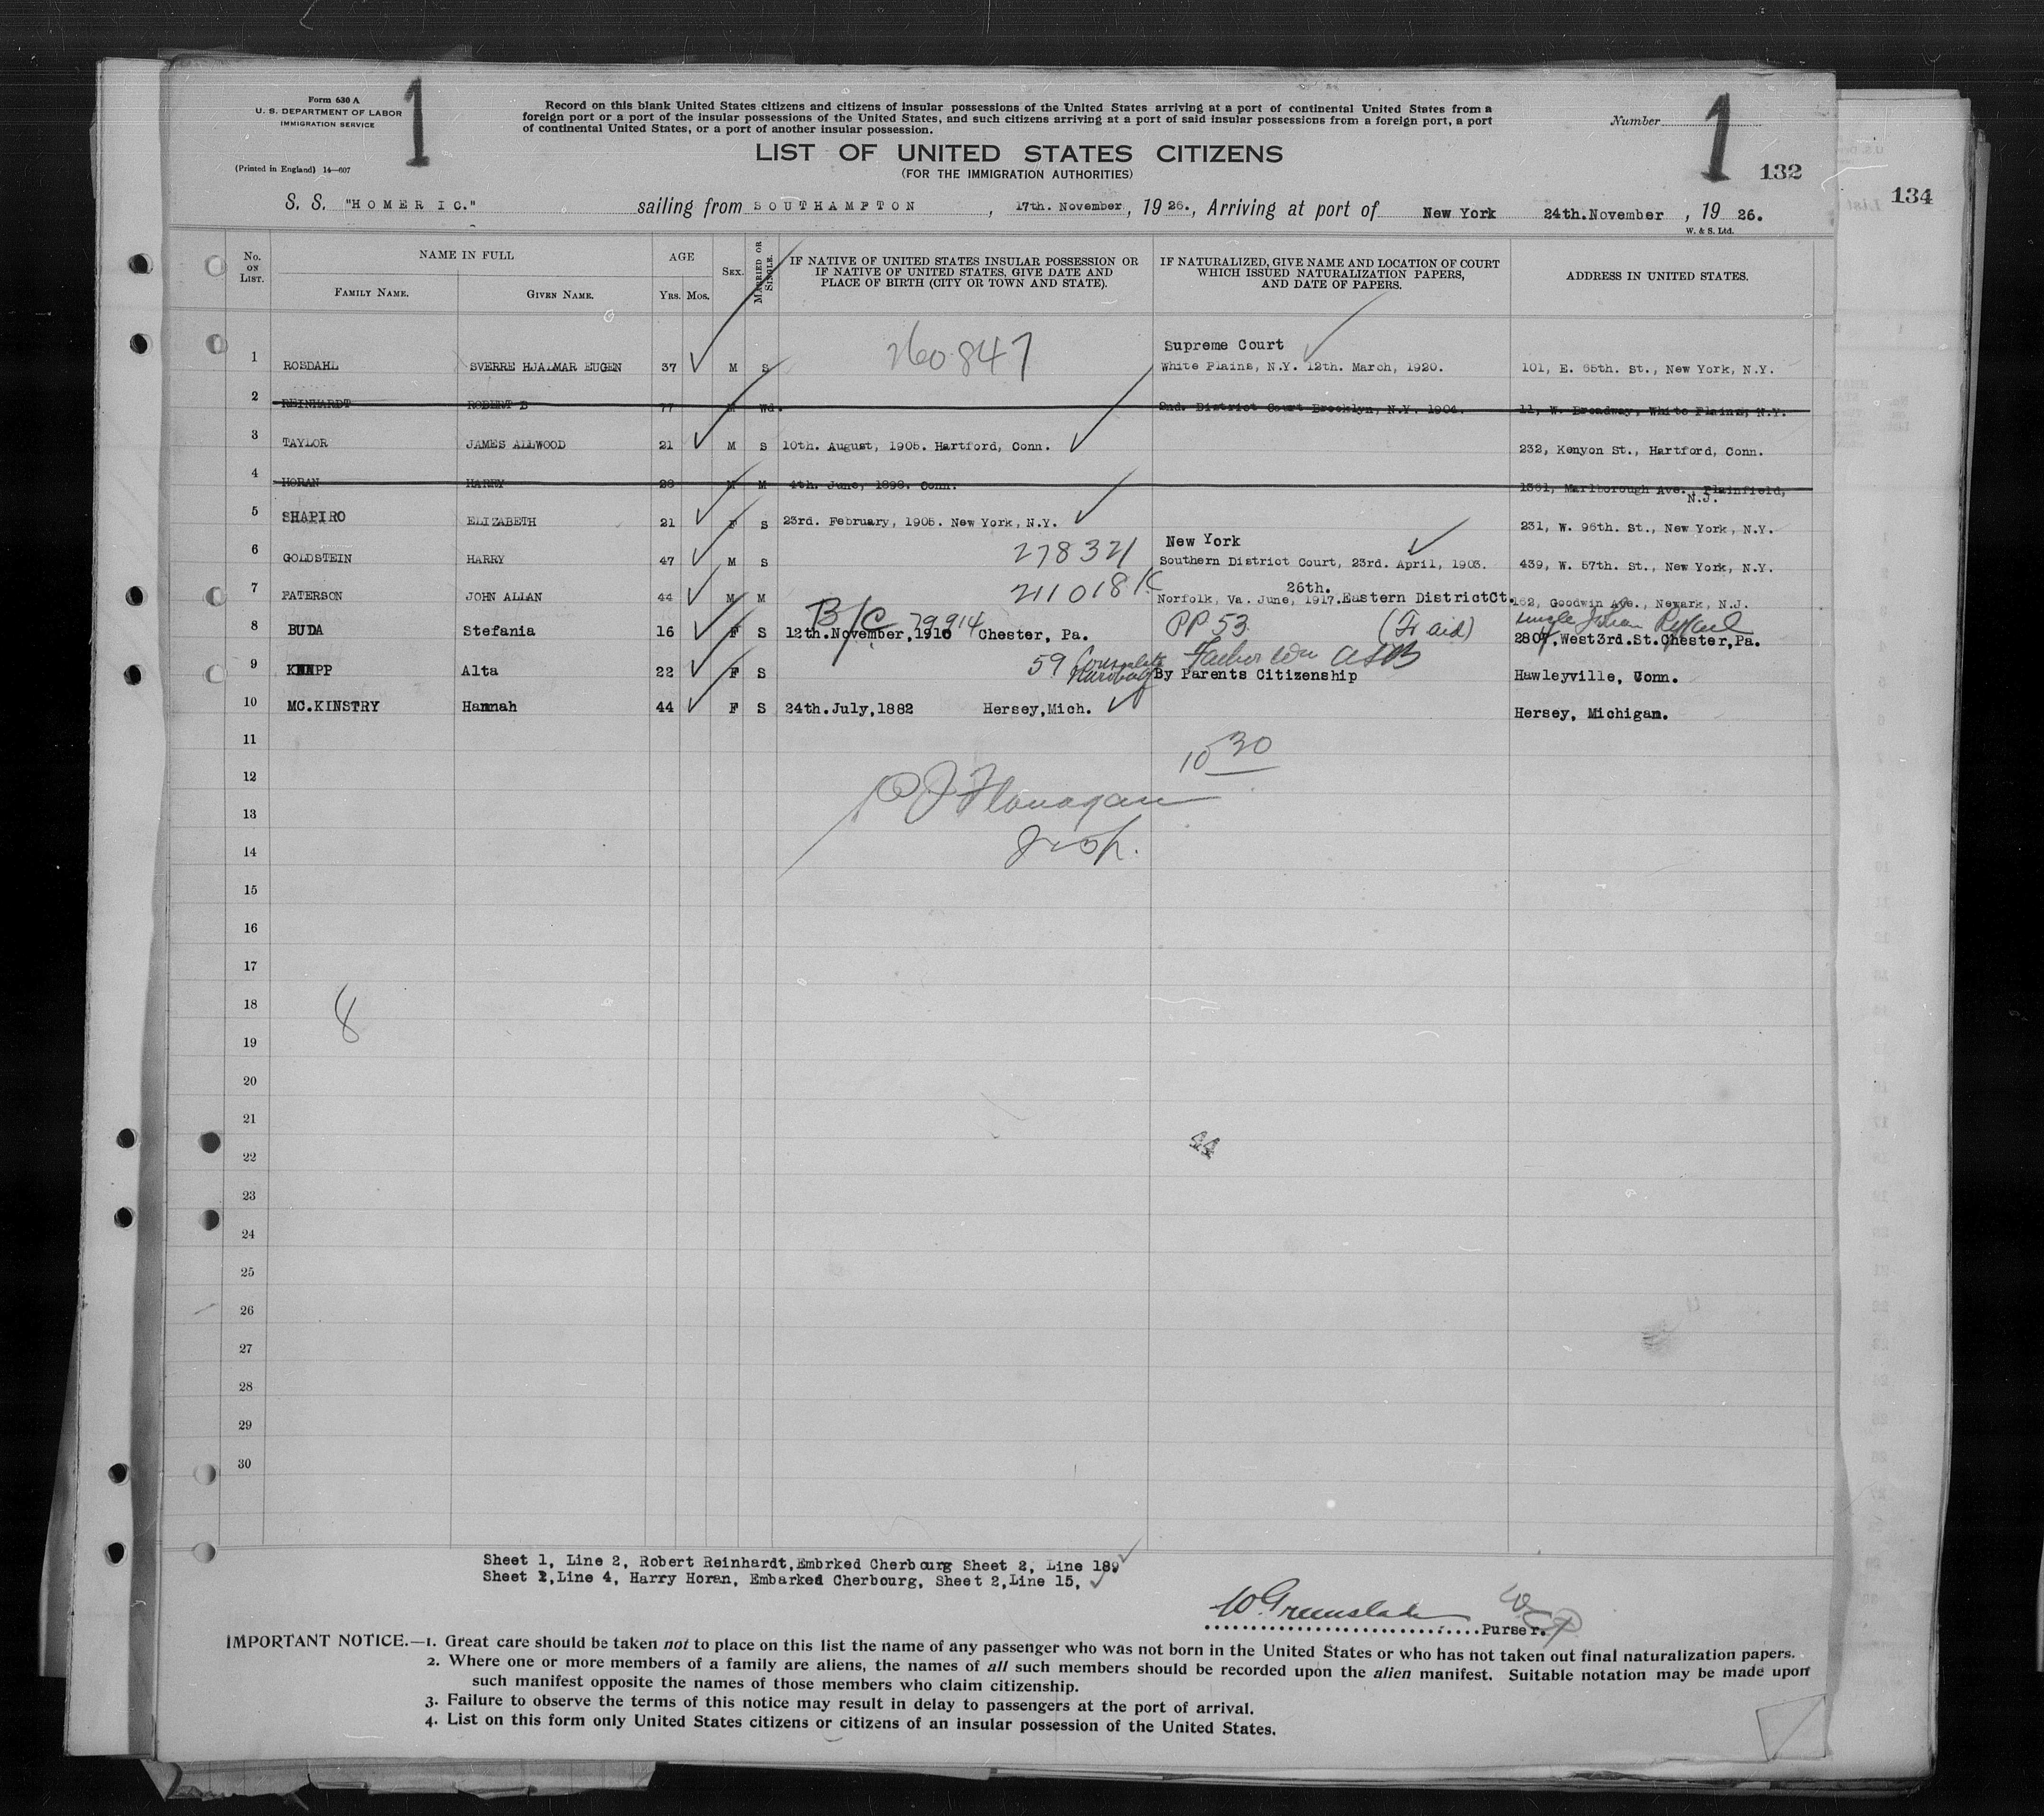 Form 630 A
U. S. DEPARTMENT OF LABOR
IMMIGRATION SERVICE
(Printed in England) 14—607
1
Record on this blank United States citizens and citizens of insular possessions of the United States arriving at a port of continental United States from a
foreign port or a port of the insular possessions of the United States, and such citizens arriving at a port of said insular possessions from a foreign port, a port
of continental United States, or a port of another insular possession.
Number 1
132
134
LIST OF UNITED STATES CITIZENS
(FOR THE IMMIGRATION AUTHORITIES)
S. S. "HOMERIC." sailing from SOUTHAMPTON, 17th. November, 1926., Arriving at port of New York 24th.November, 1926.
W. & S. Ltd.
No. ON LIST.
NAME IN FULL
FAMILY NAME.
GIVEN NAME.
AGE
YRS. MOS.
SEX.
MARRIED OR SINGLE.
IF NATIVE OF UNITED STATES INSULAR POSSESSION OR
IF NATIVE OF UNITED STATES, GIVE DATE AND
PLACE OF BIRTH (CITY OR TOWN AND STATE).
IF NATURALIZED, GIVE NAME AND LOCATION OF COURT
WHICH ISSUED NATURALIZATION PAPERS,
AND DATE OF PAPERS.
ADDRESS IN UNITED STATES.
260847
Supreme Court
1 ROSDAHL SVERRE HJALMAR EUGEN 37 M S White Plains, N.Y. 12th. March, 1920. 101, E. 65th. St., New York, N.Y.
2 REINHARDT ROBERT B 77 M Wd. 2nd. District Court Brooklyn, N.Y. 1904. 11, W. Broadway, White Plains, N.Y.
3 TAYLOR JAMES ALLWOOD 21 M S 10th. August, 1905. Hartford, Conn. 232, Kenyon St., Hartford, Conn.
4 HORAN HARRY 28 M M 4th. June, 1898. Conn. 1361, Marlborough Ave., Plainfield,
N.J.
5 SHAPIRO ELIZABETH 21 F S 23rd. February, 1905. New York, N.Y. 231, W. 96th. St., New York, N.Y.
278321 New York
6 GOLDSTEIN HARRY 47 M S Southern District Court, 23rd. April, 1903. 439, W. 57th. St., New York, N.Y.
211018 26th.
7 PATERSON JOHN ALLAN 44 M M Norfolk, Va. June, 1917.Eastern DistrictCt. 162, Goodwin Ave., Newark, N.J.
B/C 79914 PP 53 uncle
8 BUDA Stefania 16 F S 12th.November,1910 Chester, Pa. 2807,West3rd.St.Chester,Pa.
59 Consulate Father Wm
9 KNAPP Alta 22 F S By Parents Citizenship Hawleyville, Conn.
10 MC.KINSTRY Hannah 44 F S 24th.July,1882 Hersey,Mich. Hersey, Michigan.
11
10 30
12
Flanagan
13
Insp.
14
15
16
17
18
8
19
20
21
44
22
23
24
25
26
27
28
29
30
Sheet 1, Line 2, Robert Reinhardt,Embrked Cherbourg Sheet 2, Line 18.
Sheet 1,Line 4, Harry Horan, Embarked Cherbourg, Sheet 2,Line 15,
W. Greenslade
Purser.
IMPORTANT NOTICE.—1. Great care should be taken not to place on this list the name of any passenger who was not born in the United States or who has not taken out final naturalization papers.
2. Where one or more members of a family are aliens, the names of all such members should be recorded upon the alien manifest. Suitable notation may be made upon
such manifest opposite the names of those members who claim citizenship.
3. Failure to observe the terms of this notice may result in delay to passengers at the port of arrival.
4. List on this form only United States citizens or citizens of an insular possession of the United States.